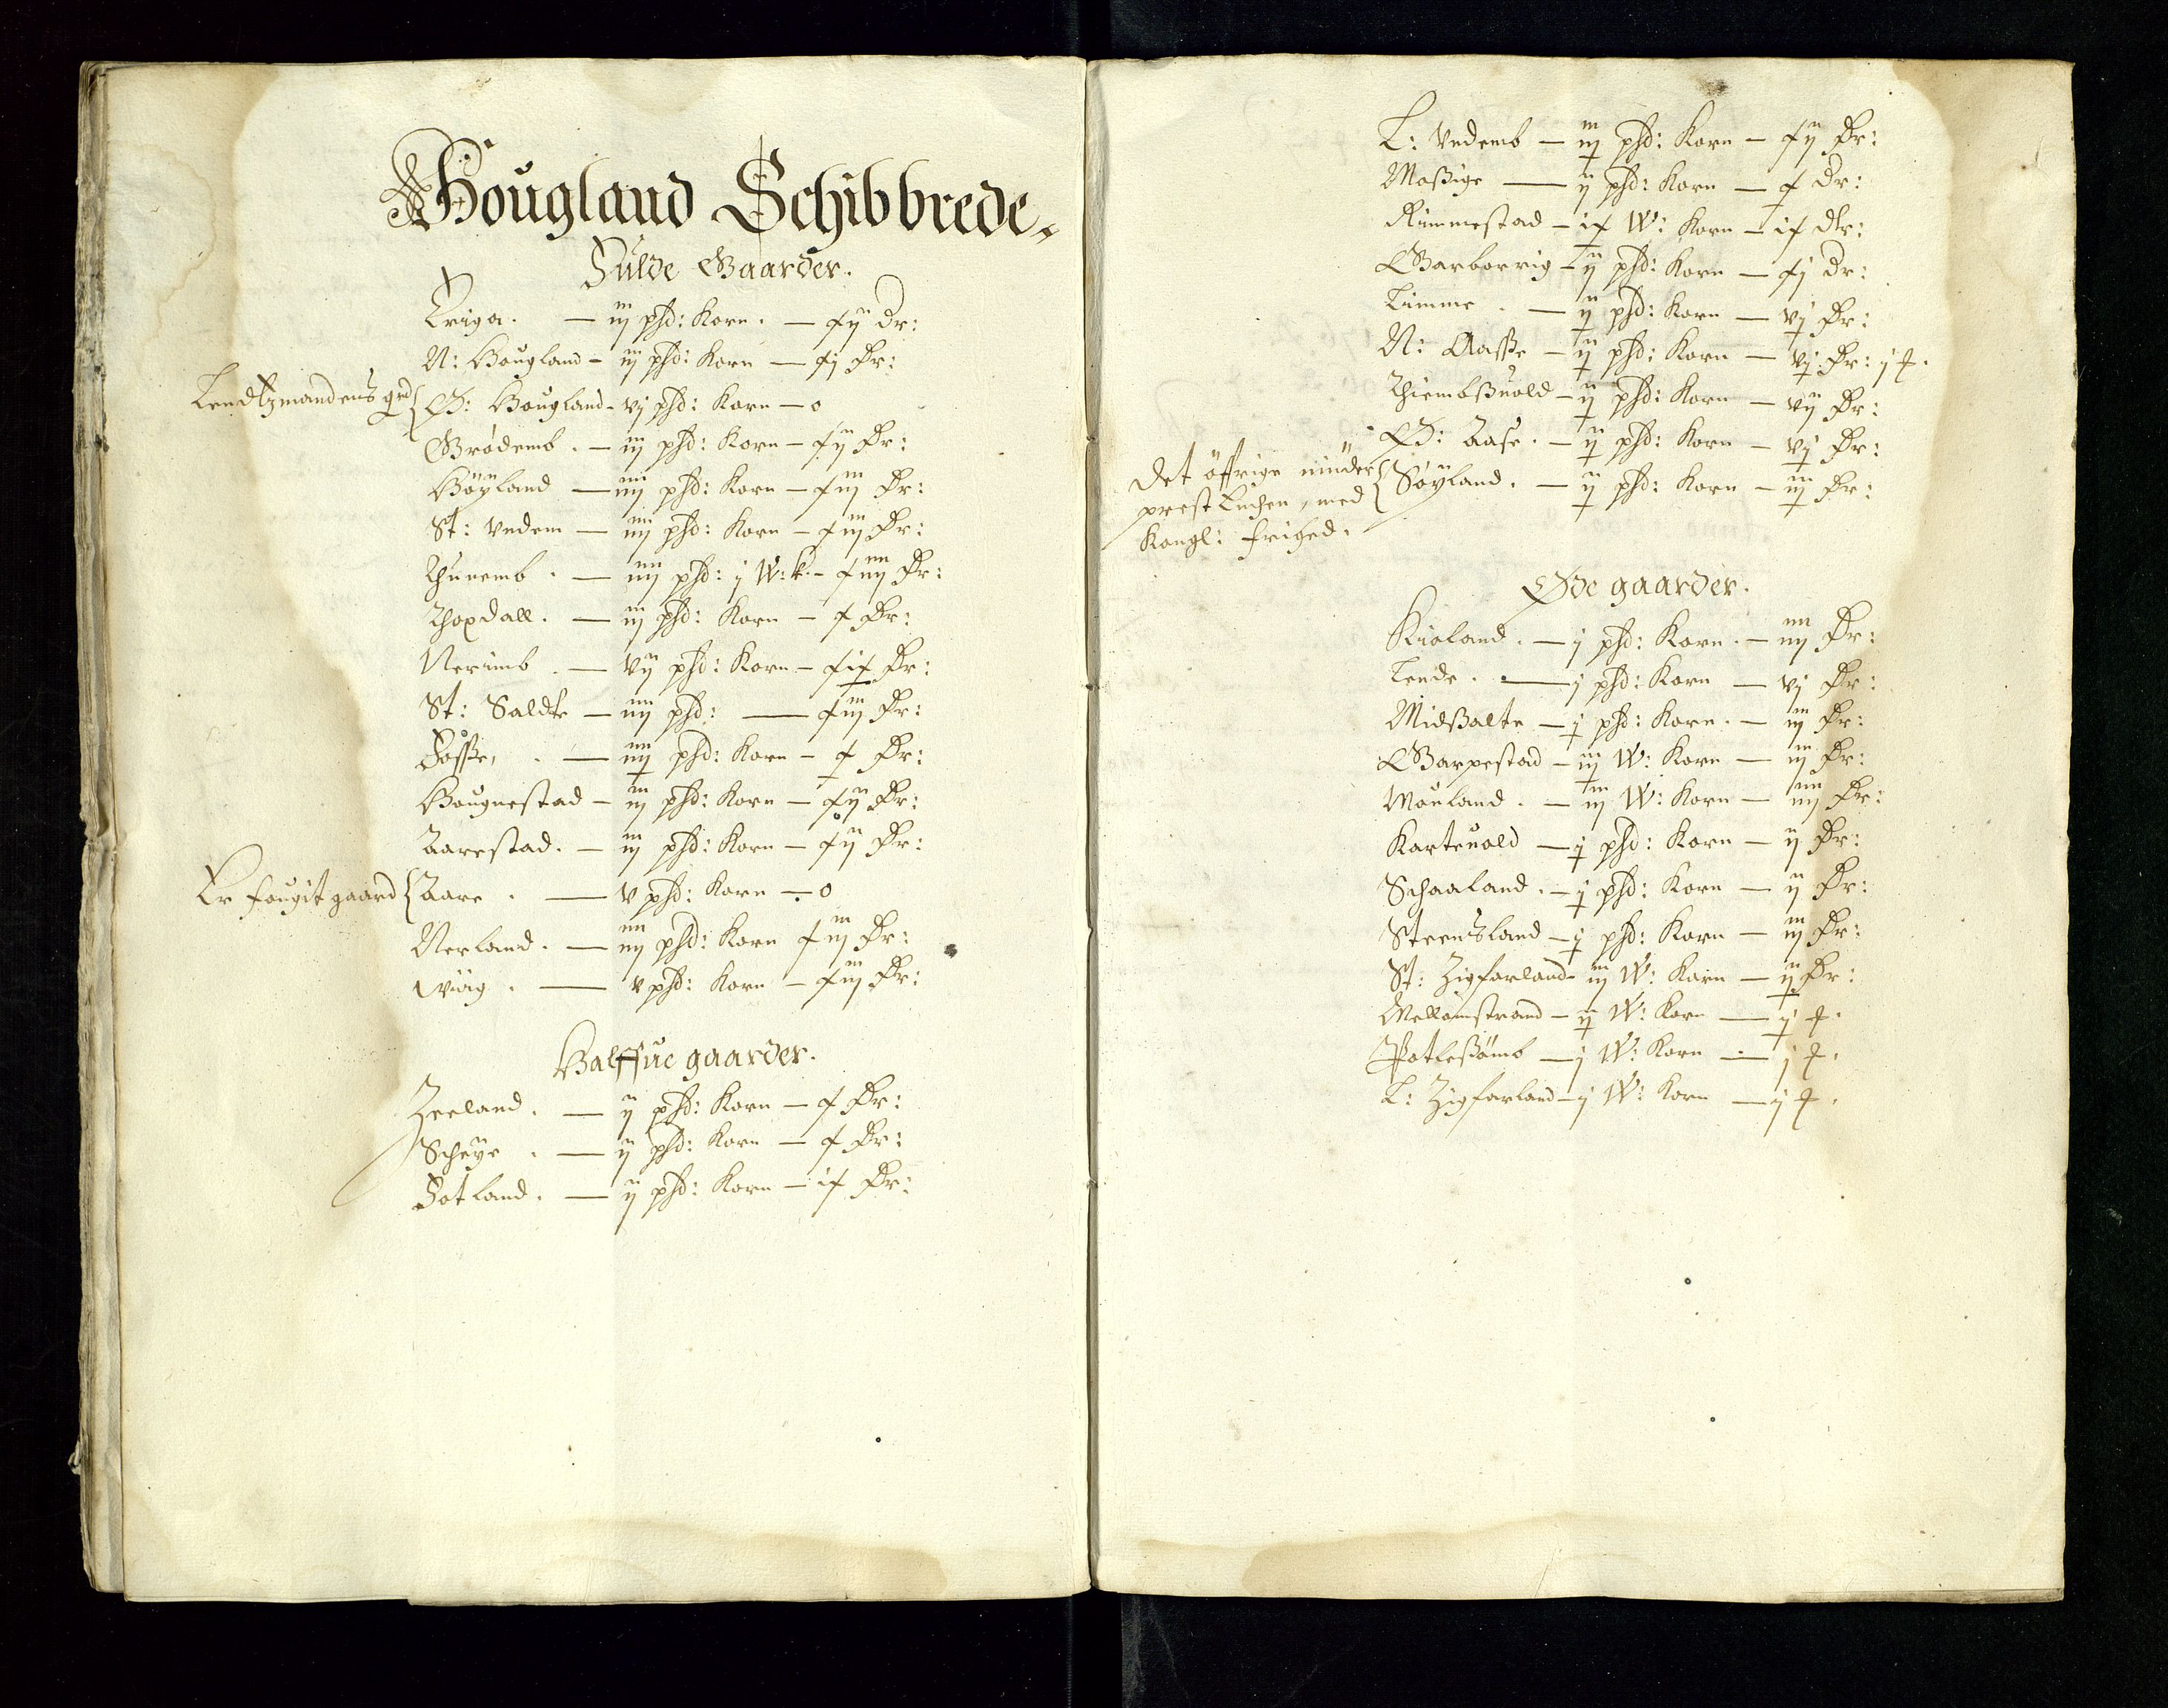 Hougland Schibbrede.
Fulde Gaarder.
Lriga. — iij phd: Korn. — xij dr:
N: Hougland — iij phd: Korn — xj dr:
Lendtzmandens grd
Ø: Hougland — vj phd: Korn — 0
Grødemb. — iij phd: Korn — xij dr:
Höyland — iiij phd: Korn — xiij dr:
St: Undem — iiij phd: Korn — xiij dr:
Thunemb. — iiij phd: j W: k. — xiiij dr:
Thoxdall. — iij phd: Korn — x dr:
Nerimb. — vij phd: Korn — xix dr:
St: Saldte — iiij phd: — xiij dr:
Fosse, . — iiij phd: Korn — x dr:
Hougnestad — iij phd: Korn — xij dr:
Aarestad. — iij phd: Korn — xij dr:
Er fougit gaard
Aare . — v phd: Korn — 0
Nerland. — iiij phd: Korn xiij dr:
Wiig . — v phd: Korn — xiij dr:
Halffue gaarder.
Zeeland. — ij phd: Korn — x dr:
Scheye . — ij phd: Korn — x dr:
Fotland. — ij phd: Korn — ix dr:
L: Undemb — iij phd: Korn — xij dr:
Mossige — ij phd: Korn — x dr:
Rimmestad — ix W: Korn — ix dlr:
Garborrig — ij phd: Korn — xj dr:
Timme . — ij phd: Korn — vj dr:
N: Aasse — ij phd: Korn — vj dr: j ƭ.
Thiemßuold — ij phd: Korn — vij dr:
Ø: Aase. — ij phd: Korn — vj dr:
Det öffrige under
prest Luchen, med
Kongl: friged.
Söyland. — ij phd: Korn — iij dr:
Øde gaarder.
Kioland. — j phd: Korn. — iiij dr:
Tende. — j phd: Korn — vj dr:
Midßalte — j phd: Korn. — iij dr:
Garpestad — iij W: Korn — iij dr:
Mouland. — iij W: Korn — iiij dr:
Karteuold — j phd: Korn — ij dr:
Schaaland. — j phd: Korn — ij dr:
Steensland — j phd: Korn — iij dr:
St: Zigfarland — iij W: Korn — ij dr:
Mellomstrand — ij W: Korn — j ƭ.
Potleßömb — j W: Korn — j ƭ.
L: Zigfarland — j W: Korn — j ƭ.